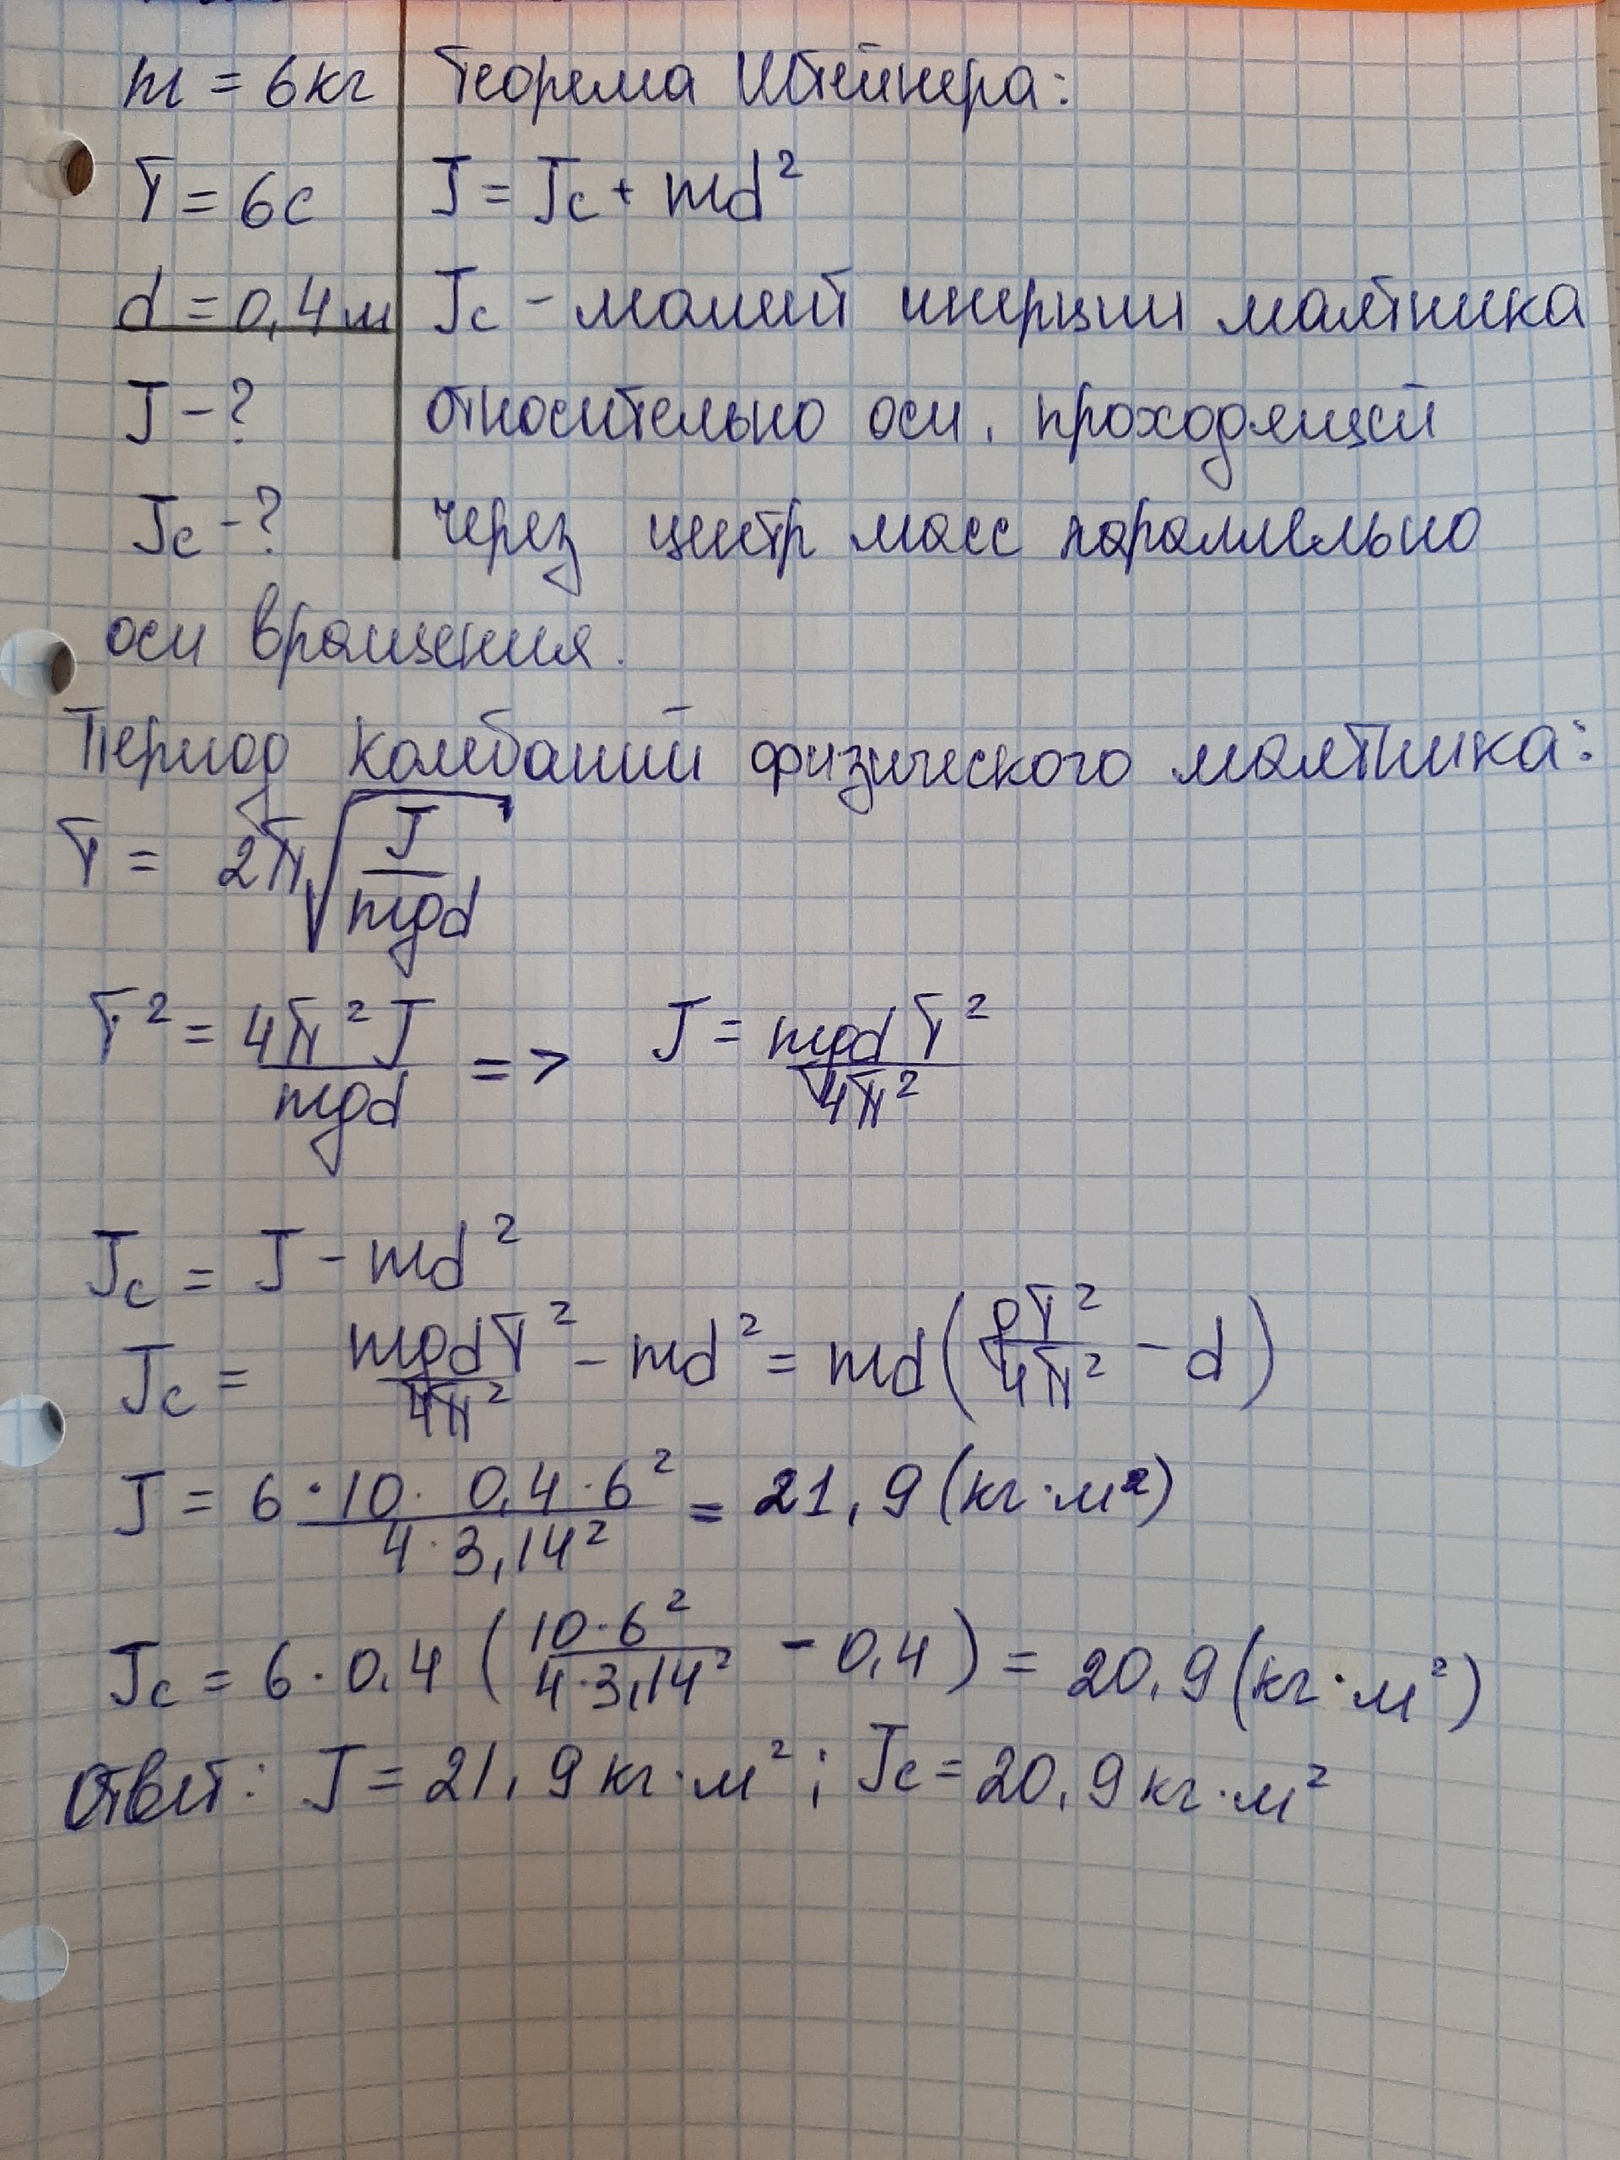 m = 6 кг
T = 6 с
d = 0,4 м
J - ?
Jc - ?
Теорема Штейнера:
J = Jc + md²
Jc - момент инерции маятника
относительно оси, проходящей
через центр масс параллельно
оси вращения.
Период колебаний физического маятника:
T = 2π√(J/mgd)
T² = 4π²J/mgd => J = mgdT²/4π²
Jc = J - md²
Jc = mgdT²/4π² - md² = md(gT²/4π² - d)
J = 6·10·0,4·6²/4·3,14² = 21,9 (кг·м²)
Jc = 6·0,4 (10·6²/4·3,14² - 0,4) = 20,9 (кг·м²)
Ответ: J = 21,9 кг·м²; Jc = 20,9 кг·м²